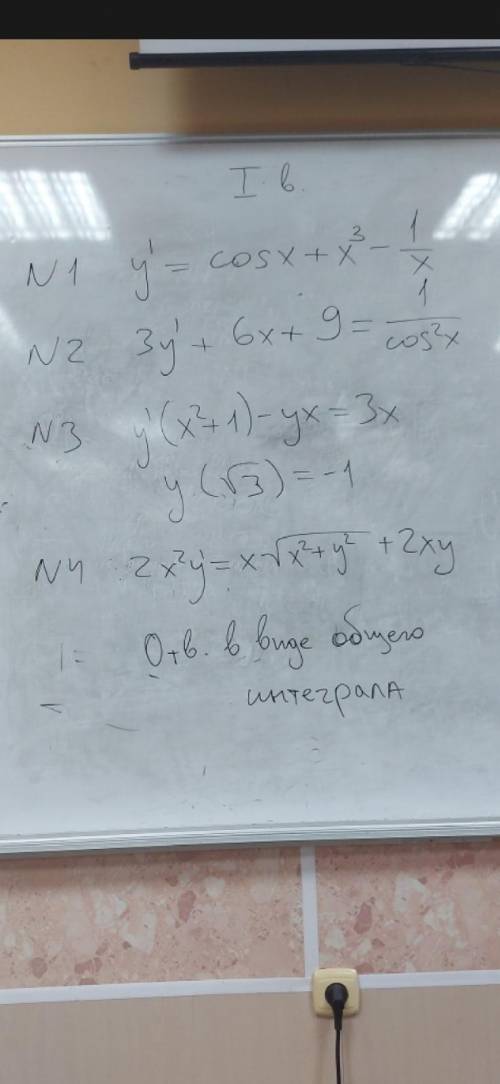 I в.
N1 y' = cosx + x³ - 1/x
N2 3y' + 6x + 9 = 1/cos²x
N3 y'(x²+1) - yx = 3x
y(√3) = -1
N4 2x²y' = x√(x²+y²) + 2xy
Отв. в виде общего
интеграла